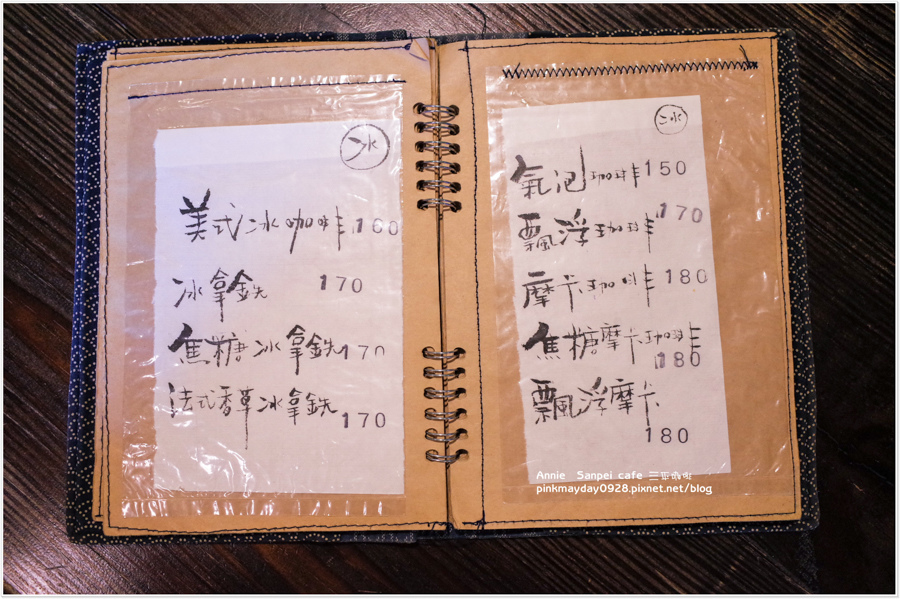 冰
美式冰咖啡 160
冰拿鉄 170
焦糖冰拿鉄 170
法式香草冰拿鉄 170
冰
氣泡咖啡 150
飄浮咖啡 170
摩卡咖啡 180
焦糖摩卡咖啡 180
飄浮摩卡 180
Annie Sanpei cafe
pinkmayday0928.pixnet.net/blog